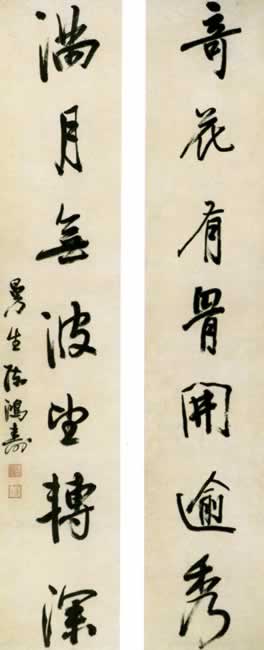 奇花有骨開逾秀
滿月無波望轉深
曼生陈鴻壽